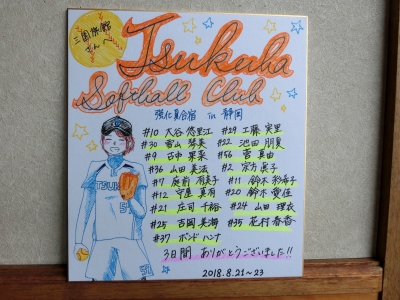 三園旅館
さんへ
Tsukuba
Softball Club
強化合宿 in 静岡
#10 大谷 悠里江 #29 工藤 実里
#30 香山 琴美 #22 池田 朋夏
#9 古中 果菜 #56 菅 真由
#36 山田 美法 #2 宗方 眞子
#7 庭前 有美子 #11 鈴木 彩希子
#12 守屋 真有 #20 鈴木 愛佳
#21 庄司 千裕 #24 山田 理衣
#25 吉岡 美海 #35 花村 春香
#37 ボンド ハンナ
3日間 ありがとうございました!!
2018.8.21~23
TSUKU
51